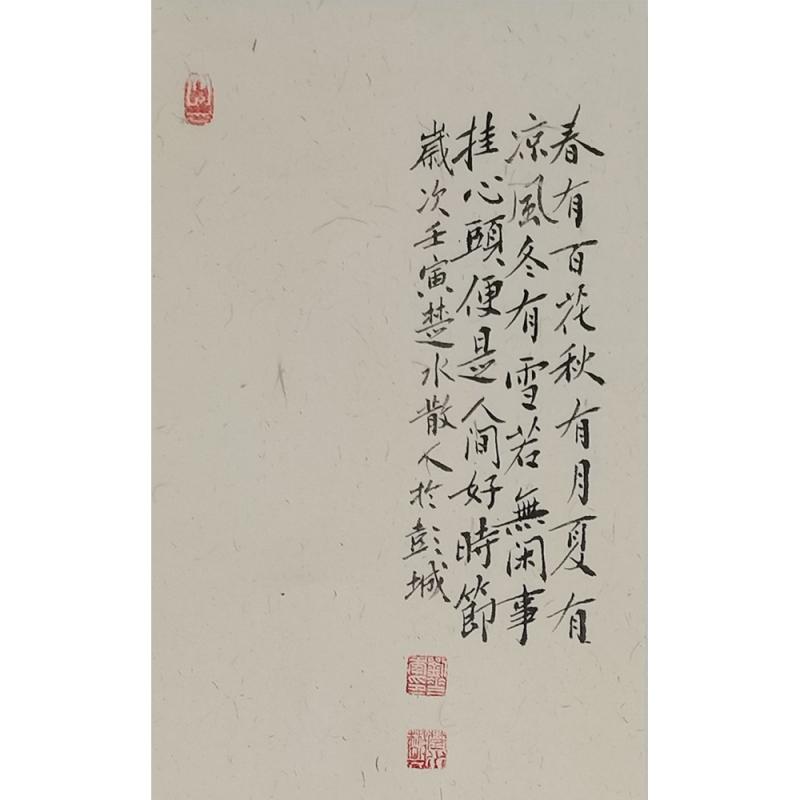 春有百花秋有月夏有
凉風冬有雪若無閑事
挂心頭便是人間好時節
歲次壬寅楚水散人於彭城